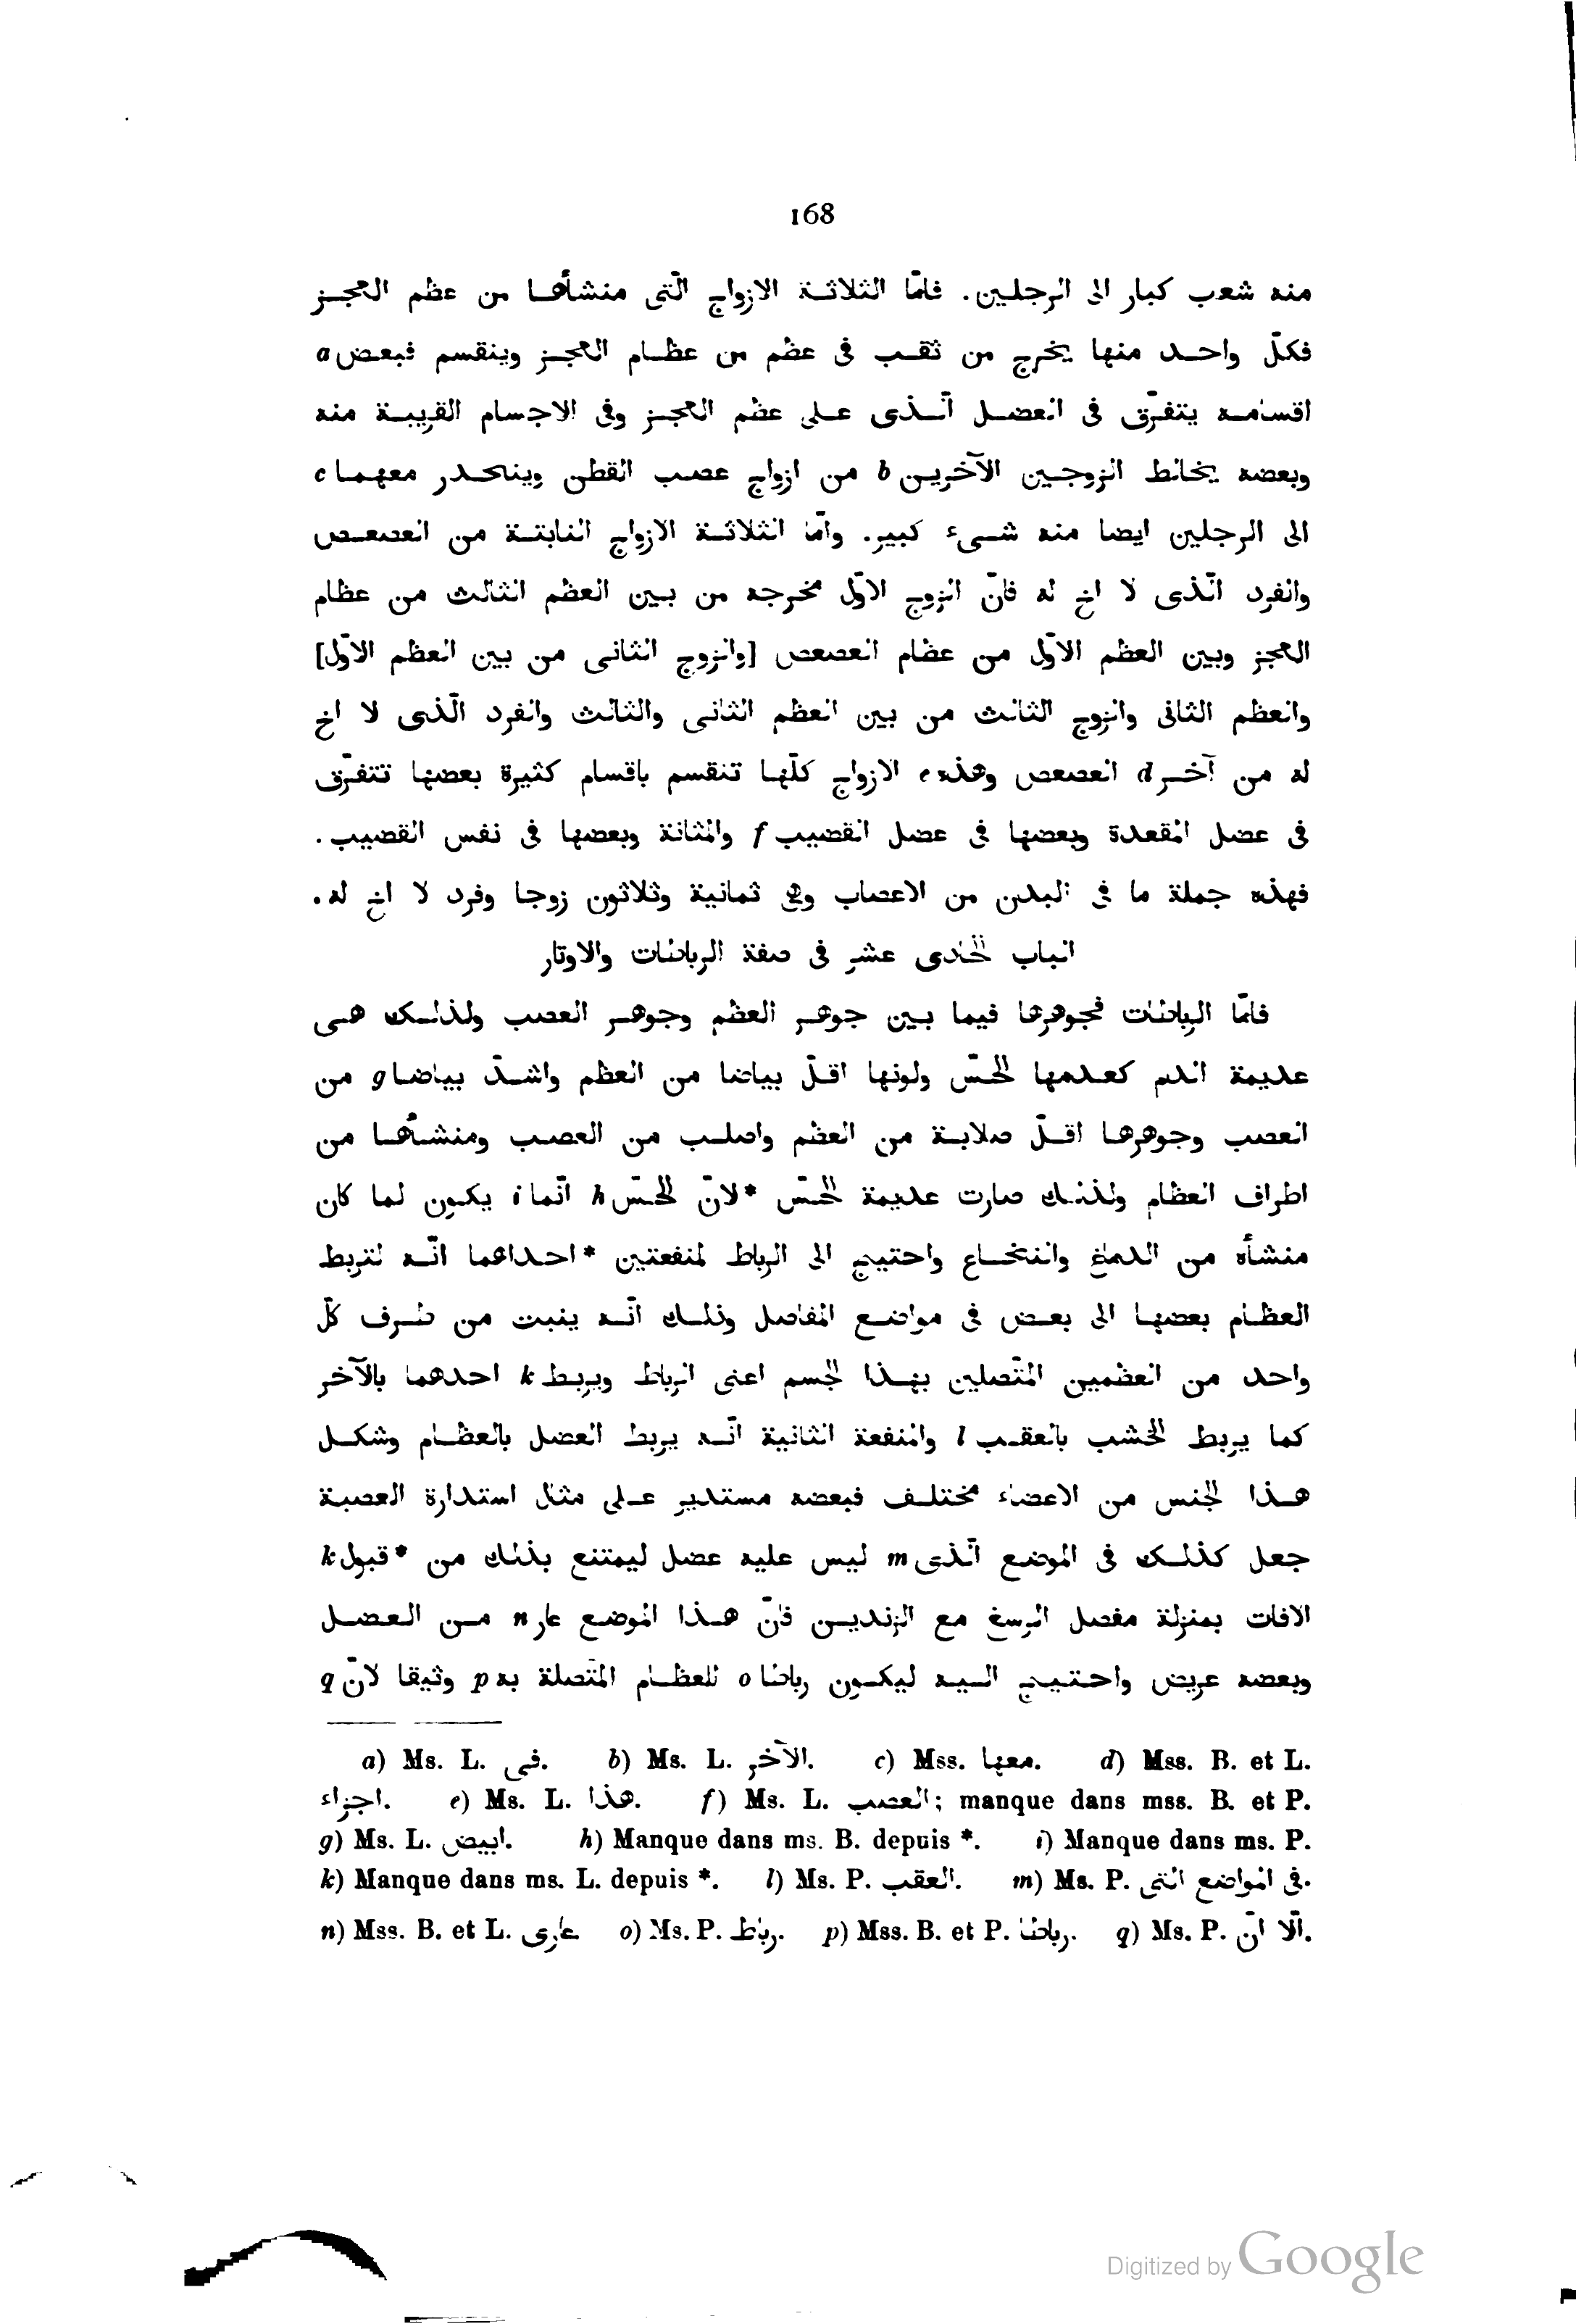 168
منه شعب كبار الى الرجلين. فامّا الثلاثة الازواج الّتى منشأها من عظم العجز
فكلّ واحد منها يخرج من ثقب فى عظم من عظام العجز وينقسم فبعض a
اقسامه يتفرّق فى العضل الّذى على عظم العجز وفى الاجسام القريبة منه
وبعضه يخالط الزوجين الآخرين b من ازواج عصب القطن وينحدر معهما c
الى الرجلين ايضا منه شىء كبير. وامّا الثلاثة الازواج النابتة من العصعص
والفرد الّذى لا اخ له فانّ الزوج الاوّل مخرجه من بين العظم الثالث من عظام
العجز وبين العظم الاوّل من عظام العصعص [والزوج الثانى من بين العظم الاوّل]
والعظم الثانى والزوج الثالث من بين العظم الثانى والثالث والفرد الّذى لا اخ
له من آخر d العصعص وهذه e الازواج كلّها تنقسم باقسام كثيرة بعضها تتفرّق
فى عضل المقعدة وبعضها فى عضل القضيب f والمثانة وبعضها فى نفس القضيب.
فهذه جملة ما فى البدن من الاعصاب وهى ثمانية وثلاثون زوجا وفرد لا اخ له.
الباب الحادى عشر فى صفة الرباطات والاوتار
فامّا الرباطات فجوهرها فيما بين جوهر العظم وجوهر العصب ولذلك هى
عديمة الدم كعدمها الحسّ ولونها اقلّ بياضا من العظم واشدّ بياضا g من
العصب وجوهرها اقلّ صلابة من العظم واصلب من العصب ومنشأها من
اطراف العظام ولذلك صارت عديمة الحسّ *لانّ الحسّ h انّما i يكون لما كان
منشأه من الدماغ والنخاع واحتيج الى الرباط لمنفعتين *احداهما انّه لتربط
العظام بعضها الى بعض فى مواضع المفاصل وذلك انّه ينبت من طرف كلّ
واحد من العظمين المتّصلين بهذا الجسم اعنى الرباط ويربط k احدهما بالآخر
كما يربط الخشب بالعقب l والمنفعة الثانية انّه يربط العضل بالعظام وشكل
هذا الجنس من الاعضاء مختلف فبعضه مستدير على مثال استدارة العصبة
جعل كذلك فى الموضع الّذى m ليس عليه عضل ليمتنع بذلك من *قبول k
الافات بمنزلة مفصل الرسغ مع الزندين فانّ هذا الموضع عار n من العضل
وبعضه عريض واحتيج اليه ليكون رباطا o للعظام المتّصلة به p وثيقا لانّ q
a) Ms. L. فى. b) Ms. L. الآخر. c) Mss. معها. d) Mss. B. et L.
اجزاء. e) Ms. L. هذا. f) Ms. L. العصب; manque dans mss. B. et P.
g) Ms. L. ابيض. h) Manque dans ms. B. depuis *. i) Manque dans ms. P.
k) Manque dans ms. L. depuis *. l) Ms. P. العقب. m) Ms. P. فى المواضع التى.
n) Mss. B. et L. عارى. o) Ms. P. رباط. p) Mss. B. et P. رباطا. q) Ms. P. الّا انّ.
Digitized by Google